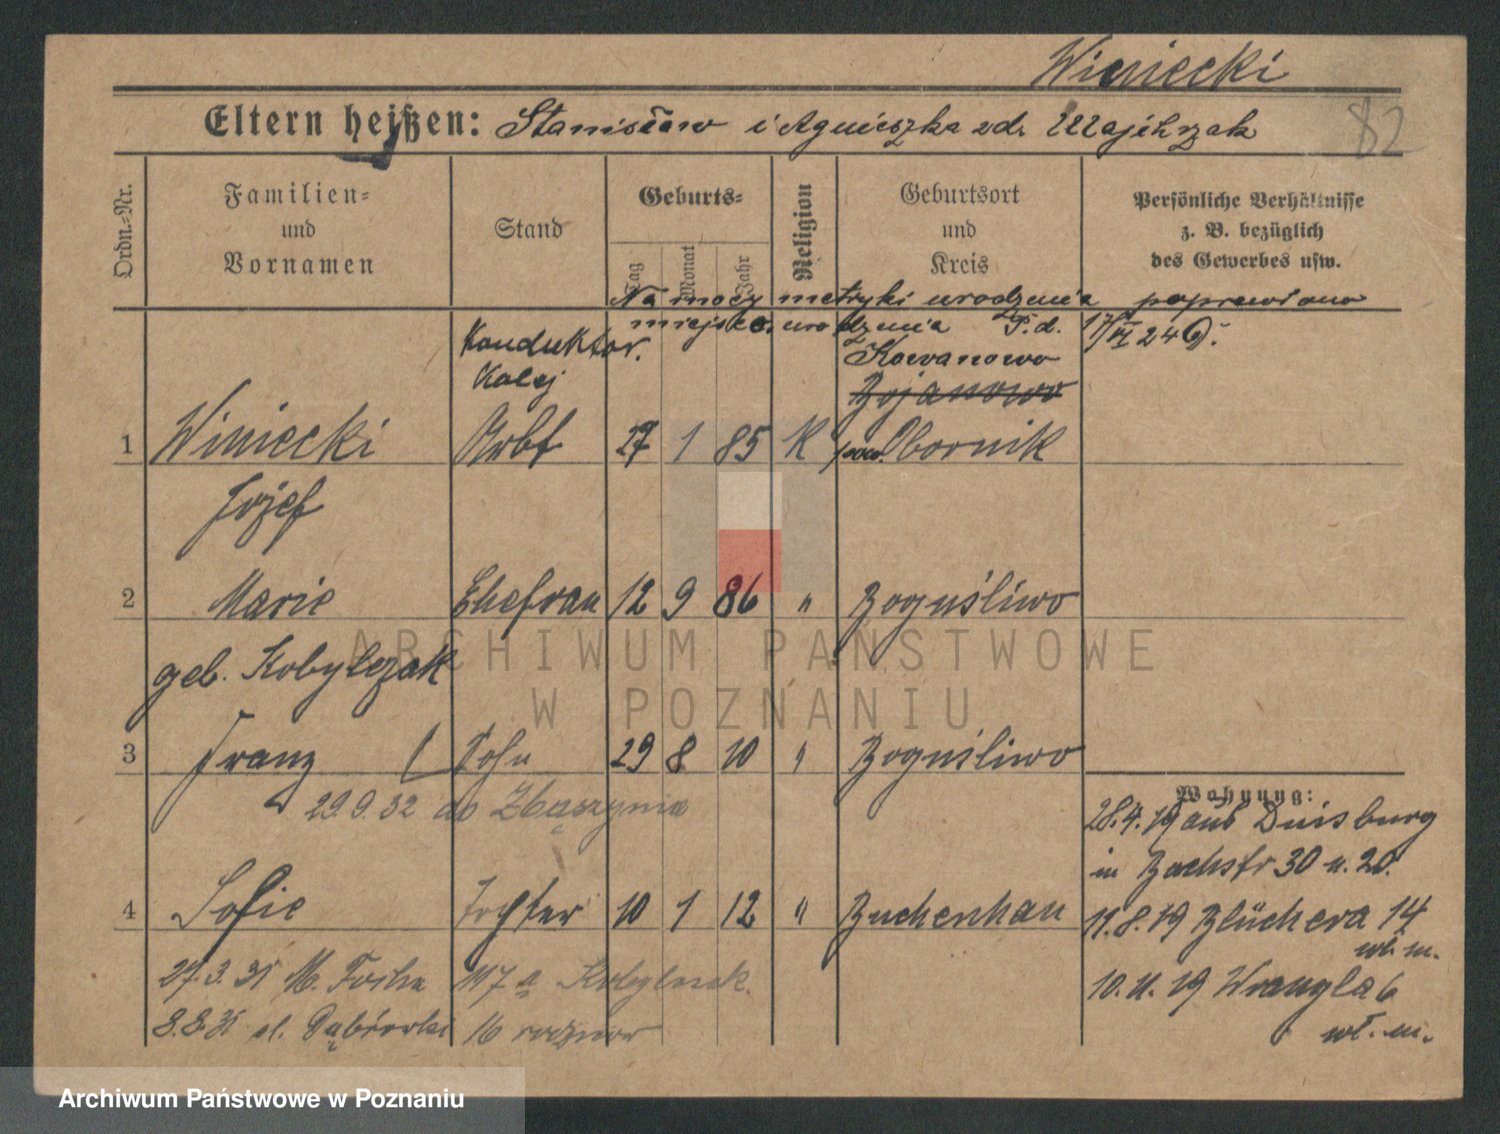 Winiecki
82
Eltern heißen: Stanisław i Agnieszka zd. Majchrzak
Ordn.-Nr.
Familien-
und
Vornamen
Stand
Geburts-
Tag
Monat
Jahr
Religion
Geburtsort
und
Kreis
Persönliche Verhältnisse
z. B. bezüglich
des Gewerbes usw.
Na mocy metryki urodzenia poprawiono
miejsce urodzenia P.d. 17/VI 24
Konduktor Kowanowo
Kolej Bojanowo
1 Winiecki Arbt 27 1 85 K pow. Obornik
Józef
2 Marie Ehefrau 12 9 86 " Boguśliwo
geb. Kobylczak
3 Franz Sohn 29 8 10 " Boguśliwo
29.9.32 do Zbąszynia
Wohnung:
28.4.19 aus Duisburg
in Bachstr 30 u. 20.
4 Sofie Tochter 10 1 12 " Buchenhau
11.8.19 Blüchera 14
wł. m.
27.3.31 M. Focha 117 a Kobylczak.
10.11.19 Wrangla 6
8.8.31 ul. Dąbrowki 16
wł. m.
ARCHIWUM PAŃSTWOWE
W POZNANIU
Archiwum Państwowe w Poznaniu